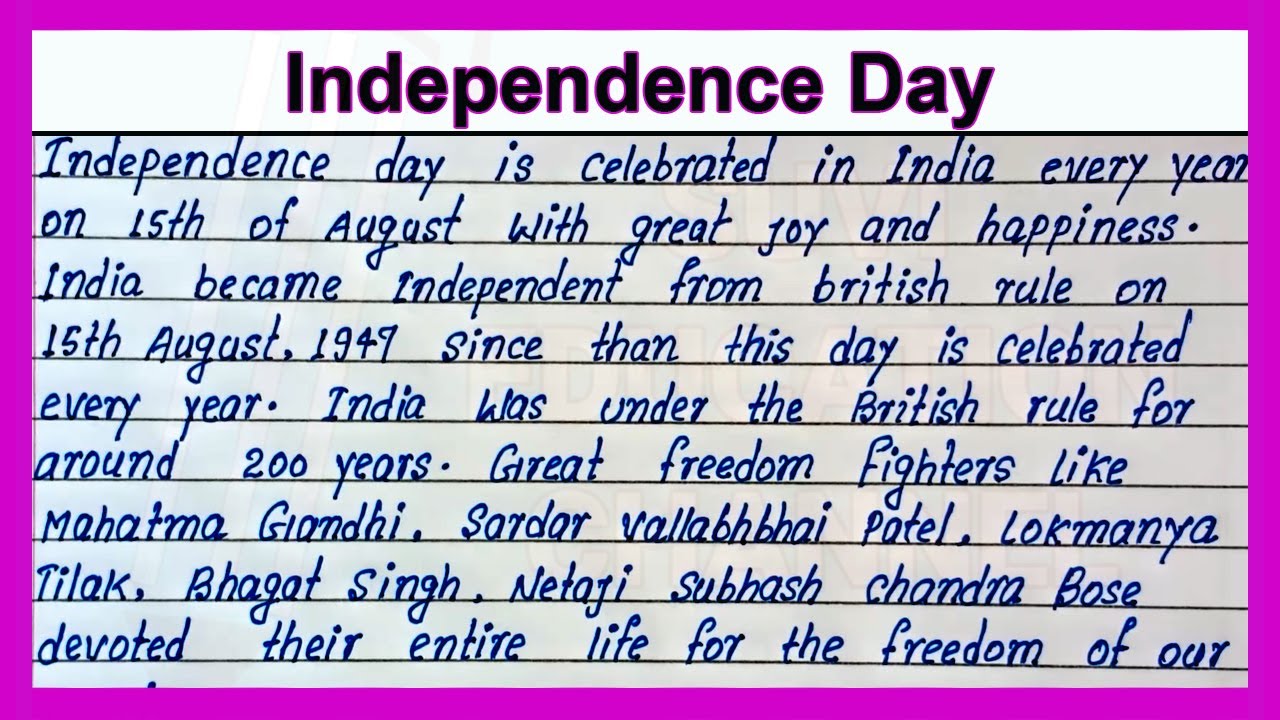 Independence Day
Independence day is celebrated in India every year
on 15th of August with great joy and happiness.
India became Independent from british rule on
15th August, 1947 since than this day is celebrated
every year. India was under the British rule for
around 200 years. Great freedom fighters like
Mahatma Gandhi, Sardar Vallabhbhai Patel, Lokmanya
Tilak, Bhagat Singh, Netaji Subhash Chandra Bose
devoted their entire life for the freedom of our